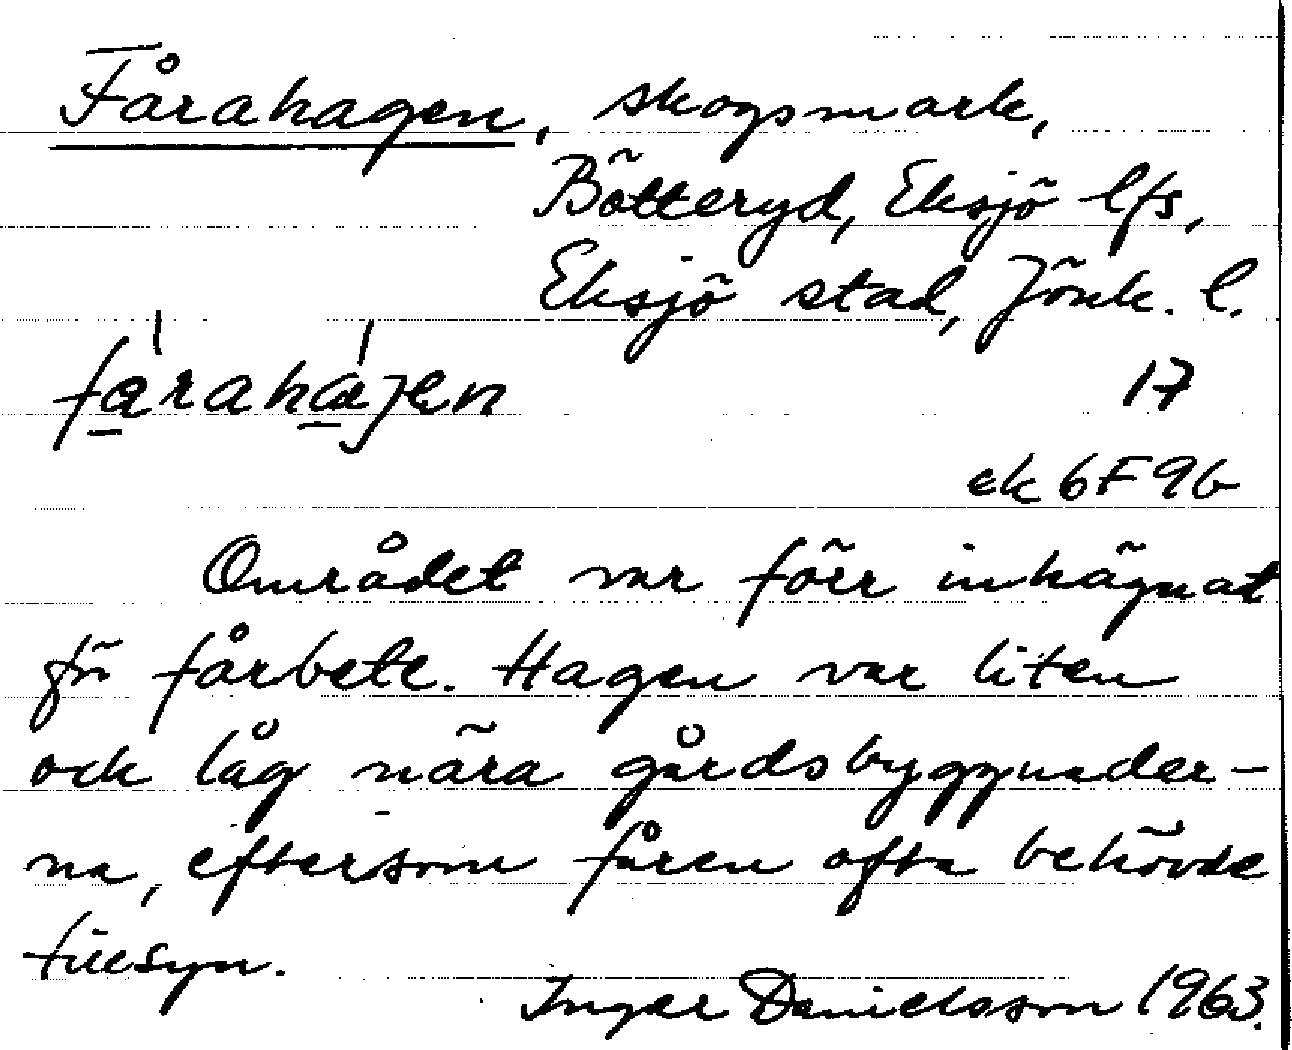 Fårahagen, skogsmark,
Bötteryd, Eksjö lfs,
Eksjö stad, Jönk. l.
fa̲raha̲jen 17
ek 6F9b
Området var förr inhägnat
för fårbete. Hagen var liten
och låg nära gårdsbyggnader-
na, eftersom fåren ofta behövde
tillsyn.
Inger Danielsson 1963.